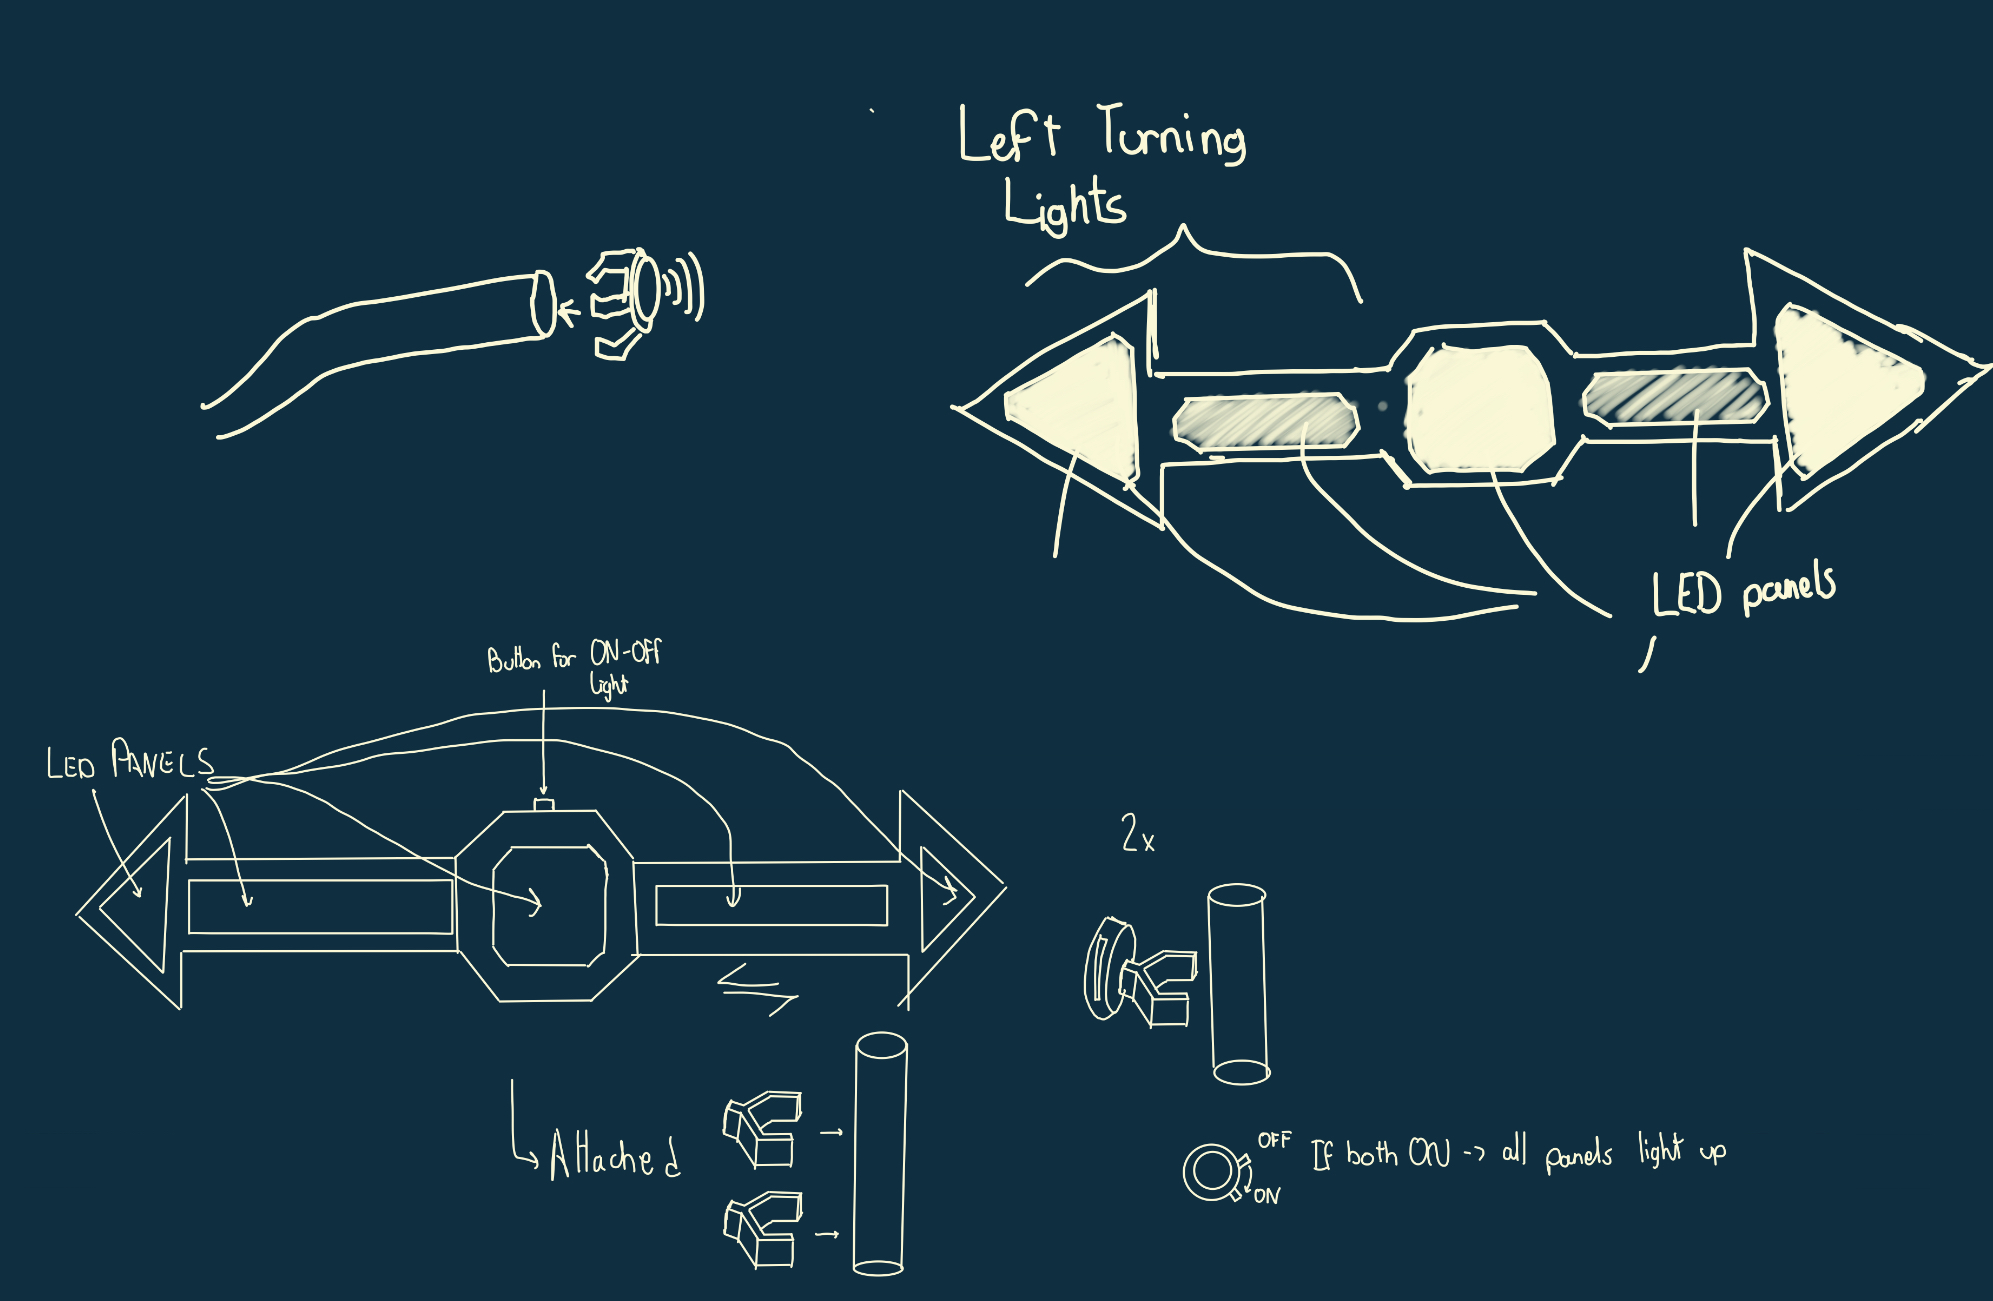 Left Turning
Lights
LED panels
Button for ON-OFF
light
LED PANELS
2x
Attached
OFF
If both ON -> all panels light up
ON